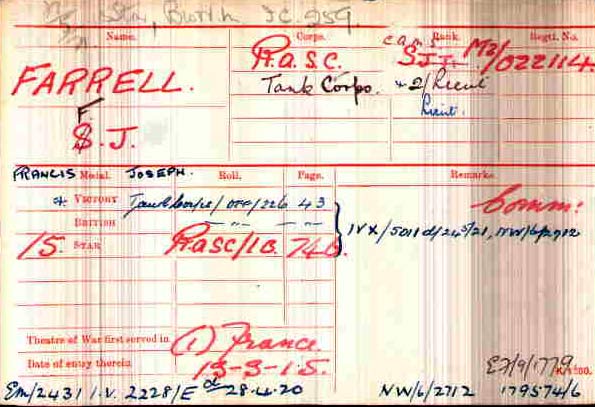 Star, British I.C. 959.
Name. Corps. Rank. Regtl. No.
FARRELL. R.A.S.C. M2/022114
Tank Corps. * 2/Lieut
F. Lieut.
J.
FRANCIS Medal. JOSEPH. Roll. Page. Remarks.
* VICTORY Tank Corps/Off/226 43 Comm:
BRITISH —"— —"— IVX/5011
15. STAR RASC/1C. 74
Theatre of War first served in (1) France.
Date of entry therein 13-3-15.
EF/9/1779 K1380.
Em/2431 I.V. 2228/E d 28.4.20 NW/6/2712 179574/6